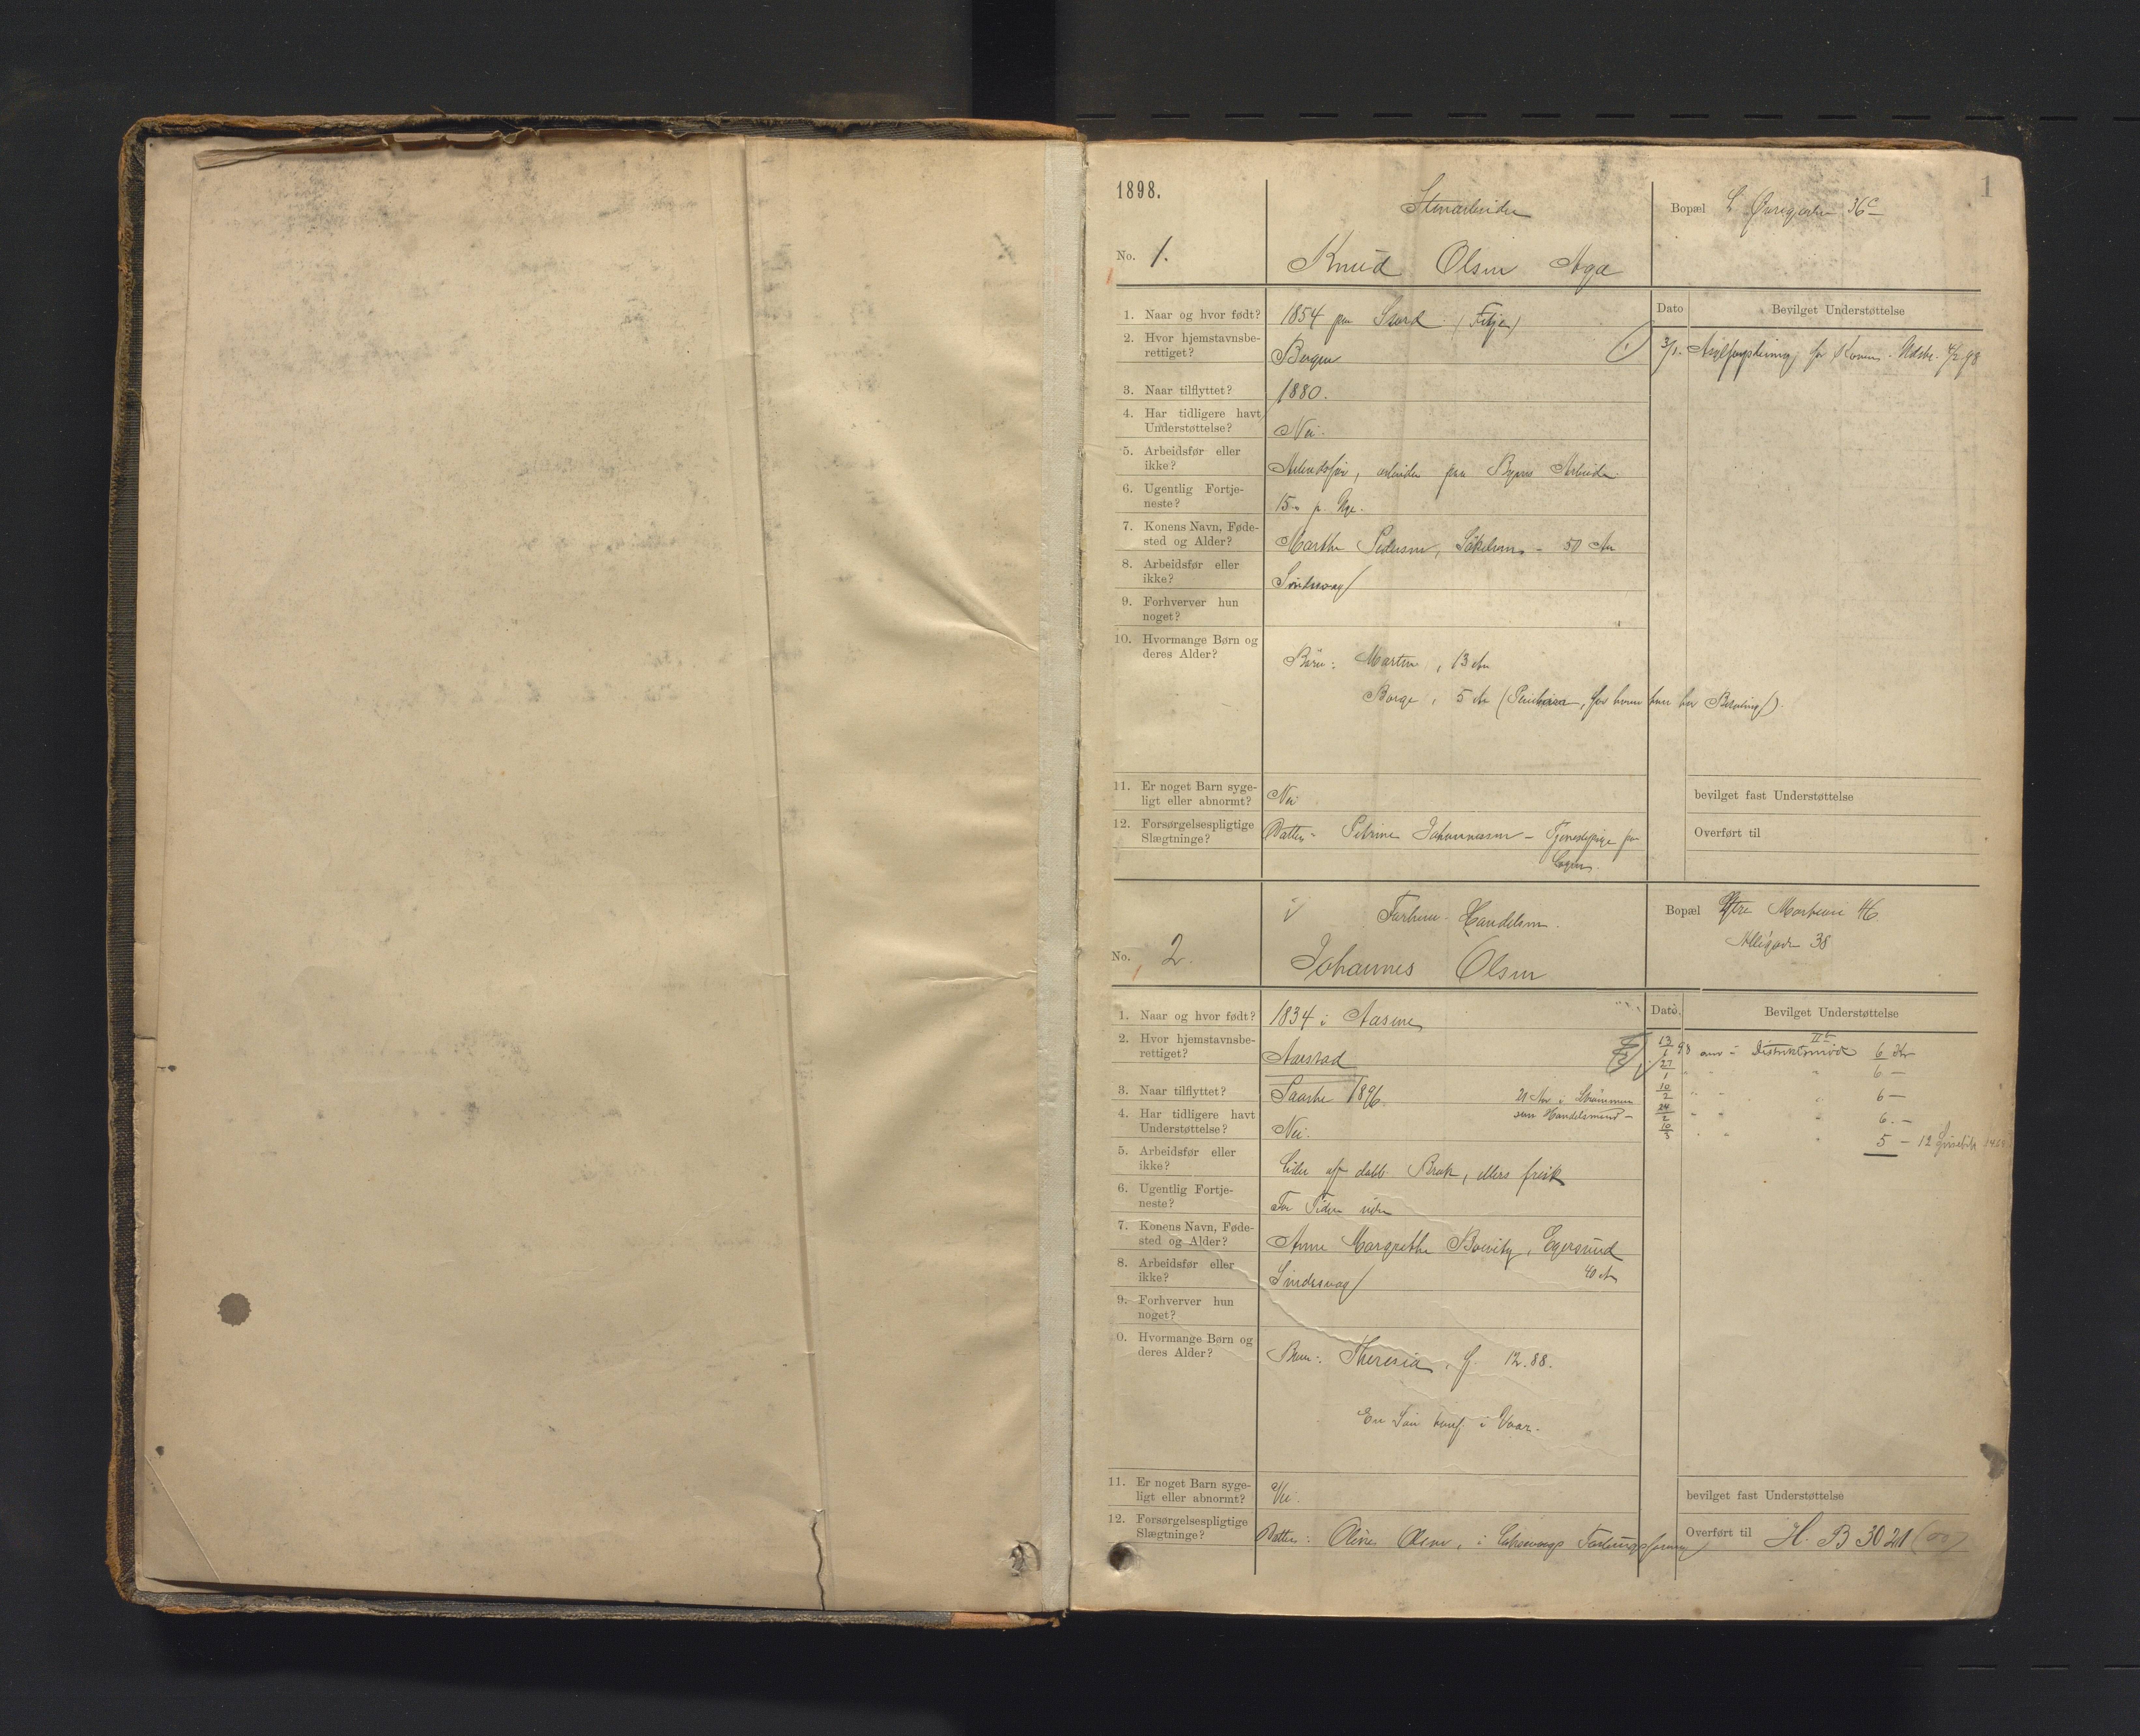 1898.
1
Stenarbeider
Bopæl L. Øvregaden 36c
No. 1.
Knud Olsen Aga
Dato
Bevilget Understøttelse
1. Naar og hvor født?
1854 paa Stord (Fitje)
2. Hvor hjemstavnsbe-
rettiget?
Bergen
3/1. for Konen. 4/2 98
3. Naar tilflyttet?
1880.
4. Har tidligere havt
Understøttelse?
Nei.
5. Arbeidsfør eller
ikke?
Arbeidsfør, arbeider paa Byens Arbeide
6. Ugentlig Fortje-
neste?
15 p. Uge.
7. Konens Navn, Føde-
sted og Alder?
Marthe Pedersen, 50 Aar
8. Arbeidsfør eller
ikke?
Sindssvag
9. Forhverver hun
noget?
10. Hvormange Børn og
deres Alder?
Börn: Martin, 13 Aar
Borge, 5 Aar (for hvem han har Betaling).
11. Er noget Barn syge-
ligt eller abnormt?
Nei
bevilget fast Understøttelse
12. Forsørgelsespligtige
Slægtninge?
Datter Petrine Johannessen - Tjenestepige paa
Overført til
Handelsm.
Bopæl Ytre Markevei 46.
Allégaden 38
No. 2.
Johannes Olsen
Dato.
Bevilget Understøttelse
1. Naar og hvor født?
1834 i
2. Hvor hjemstavnsbe-
rettiget?
Aarstad
13/1 98 Distriktsmöde 6 Kr
27/1 " " 6 —
3. Naar tilflyttet?
1896
10/2 " " 6 —
4. Har tidligere havt
Understøttelse?
Nei.
21 Aar i
som Handelsmand -
24/2 " " 6. —
10/3 " " 5 — 12
5. Arbeidsfør eller
ikke?
Lider af dobb. Brok, ellers frisk
6. Ugentlig Fortje-
neste?
For Tiden uden
7. Konens Navn, Føde-
sted og Alder?
Anne Margrethe Egersund
40 Aar
8. Arbeidsfør eller
ikke?
Sindssvag
9. Forhverver hun
noget?
0. Hvormange Børn og
deres Alder?
Barn: Theresia, f. 12.88.
En Sön konf. i Vaar.
11. Er noget Barn syge-
ligt eller abnormt?
Nei.
bevilget fast Understøttelse
12. Forsørgelsespligtige
Slægtninge?
Datter: Oline Olsen, i
Overført til H. B 3021 (00)